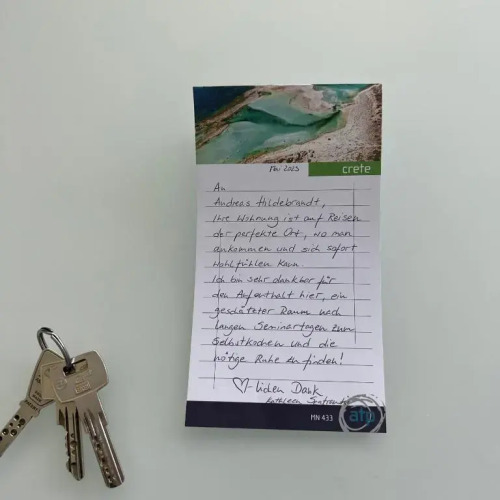 Mai 2023
crete
An
Andreas Hildebrandt,
Ihre Wohnung ist auf Reisen
der perfekte Ort, wo man
ankommen und sich sofort
wohlfühlen kann.
Ich bin sehr dankbar für
den Aufenthalt hier, ein
geschützter Raum nach
langen Seminartagen zum
Selbstkochen und die
nötige Ruhe zu finden!
♡-lichen Dank
Kathleen
MN 433